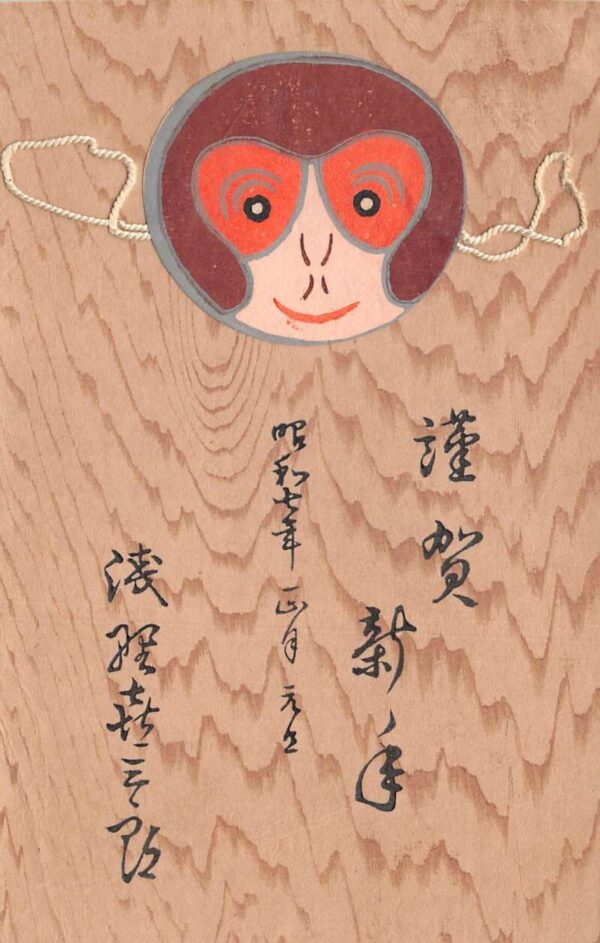 謹賀
新年
昭和七年 正月 元旦
淺野喜三郎